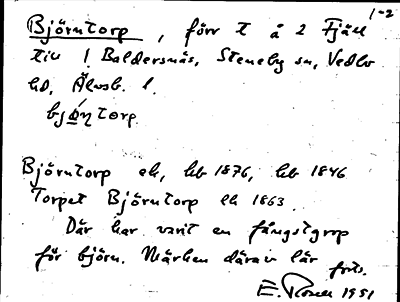 1-2
Björntorp, förr t å 2 Fjäll
till 1 Baldersnäs, Steneby sn, Vedbo
hd, Älvsb. l.
Björntorp ek, hb 1876, hb 1846
Torpet Björntorp ek 1863.
Där har varit en fångstgrop
för björn. Märken därav lär
forts.
E. Rosell 1951